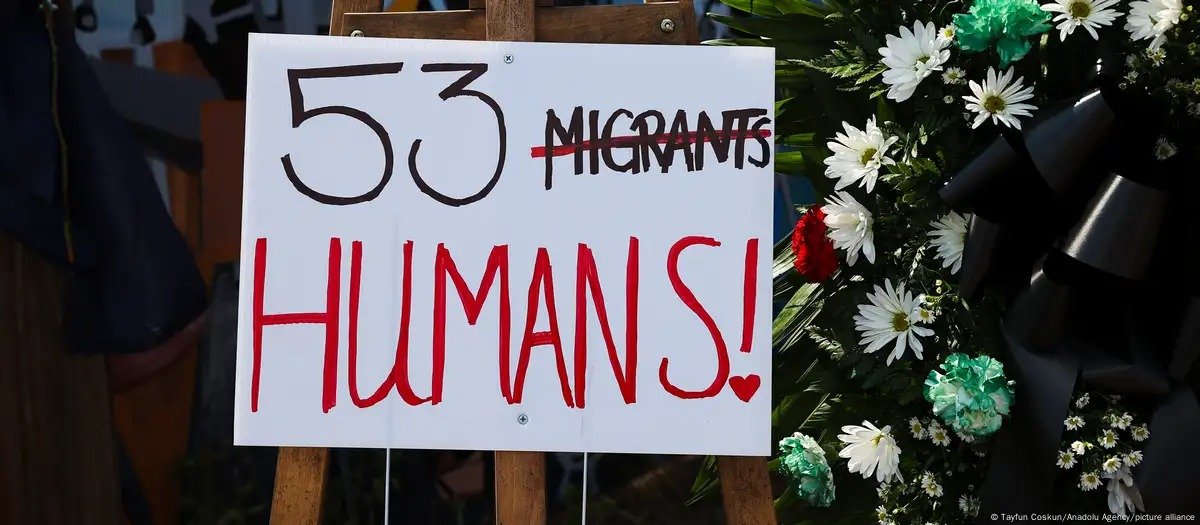 53 MIGRANTS
HUMANS!
© Tayfun Coskun/Anadolu Agency/picture alliance